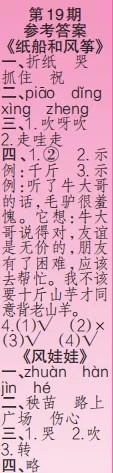 第19期
参考答案
《纸船和风筝》
一、折纸 哭
抓住 祝
二、piāo dǐng
xìng zheng
三、1.吹呀吹
2.走哇走
四、1.② 2.示
例:千斤 3.示
例:听了牛大哥
的话,毛驴很羞
愧。它想:牛大
哥说得对,友谊
是无价的,朋友
有了困难,应该
去帮忙。我不该
要十斤山芋才同
意背老山羊。
4.(1)√ (2)×
(3)√ (4)√
《风娃娃》
一、zhuàn hàn
jìn hé
二、秧苗 路上
广场 伤心
三、1.哭 2.吹
3.转
四、略